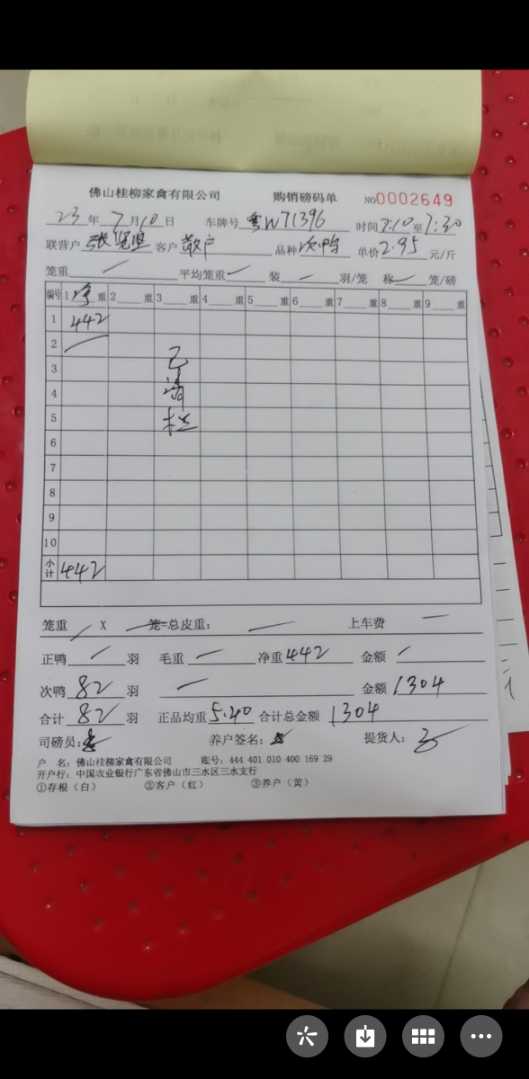 佛山桂柳家禽有限公司 购销磅码单 NO0002649
23年7月10日 车牌号 粤W71396 时间7:10至7:30
联营户 张 客户 散户 品种 次鸭 单价2.95元/斤
笼重 平均笼重 装 羽/笼 称 笼/磅
编号 1净重 2 重 3 重 4 重 5 重 6 重 7 重 8 重 9 重
1 442
2
3 已
4 清
5 栏
6
7
8
9
10
小计 442
笼重 X 笼=总皮重: 上车费
正鸭 羽 毛重 净重442 金额
次鸭82羽 金额1304
合计82羽 正品均重5.40 合计总金额1304
司磅员: 养户签名: 提货人:
户 名: 佛山桂柳家禽有限公司 账号: 444 401 010 400 169 29
开户行: 中国农业银行广东省佛山市三水区三水支行
①存根(白) ②客户(红) ③养户(黄)